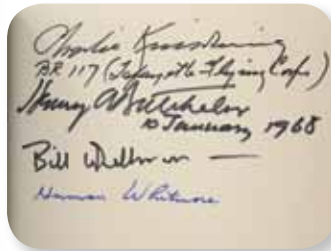 Charles Kinsolving
BR 117 (Lafayette Flying Corps)
Henry A Batchelor
10 January 1968
Bill Wellman
Herman Whitmore